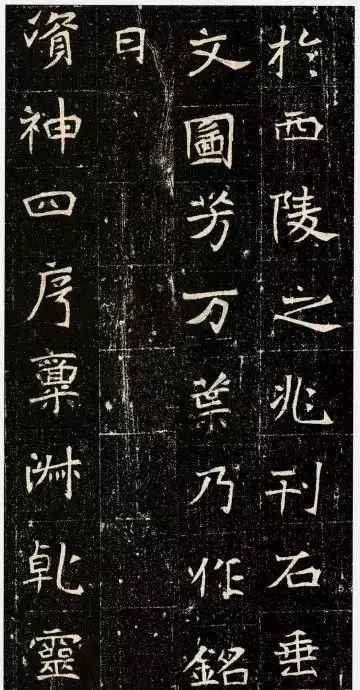 於西陵之兆刊石垂
文圖芳万葉乃作銘
曰
資神四序稟淑乹靈